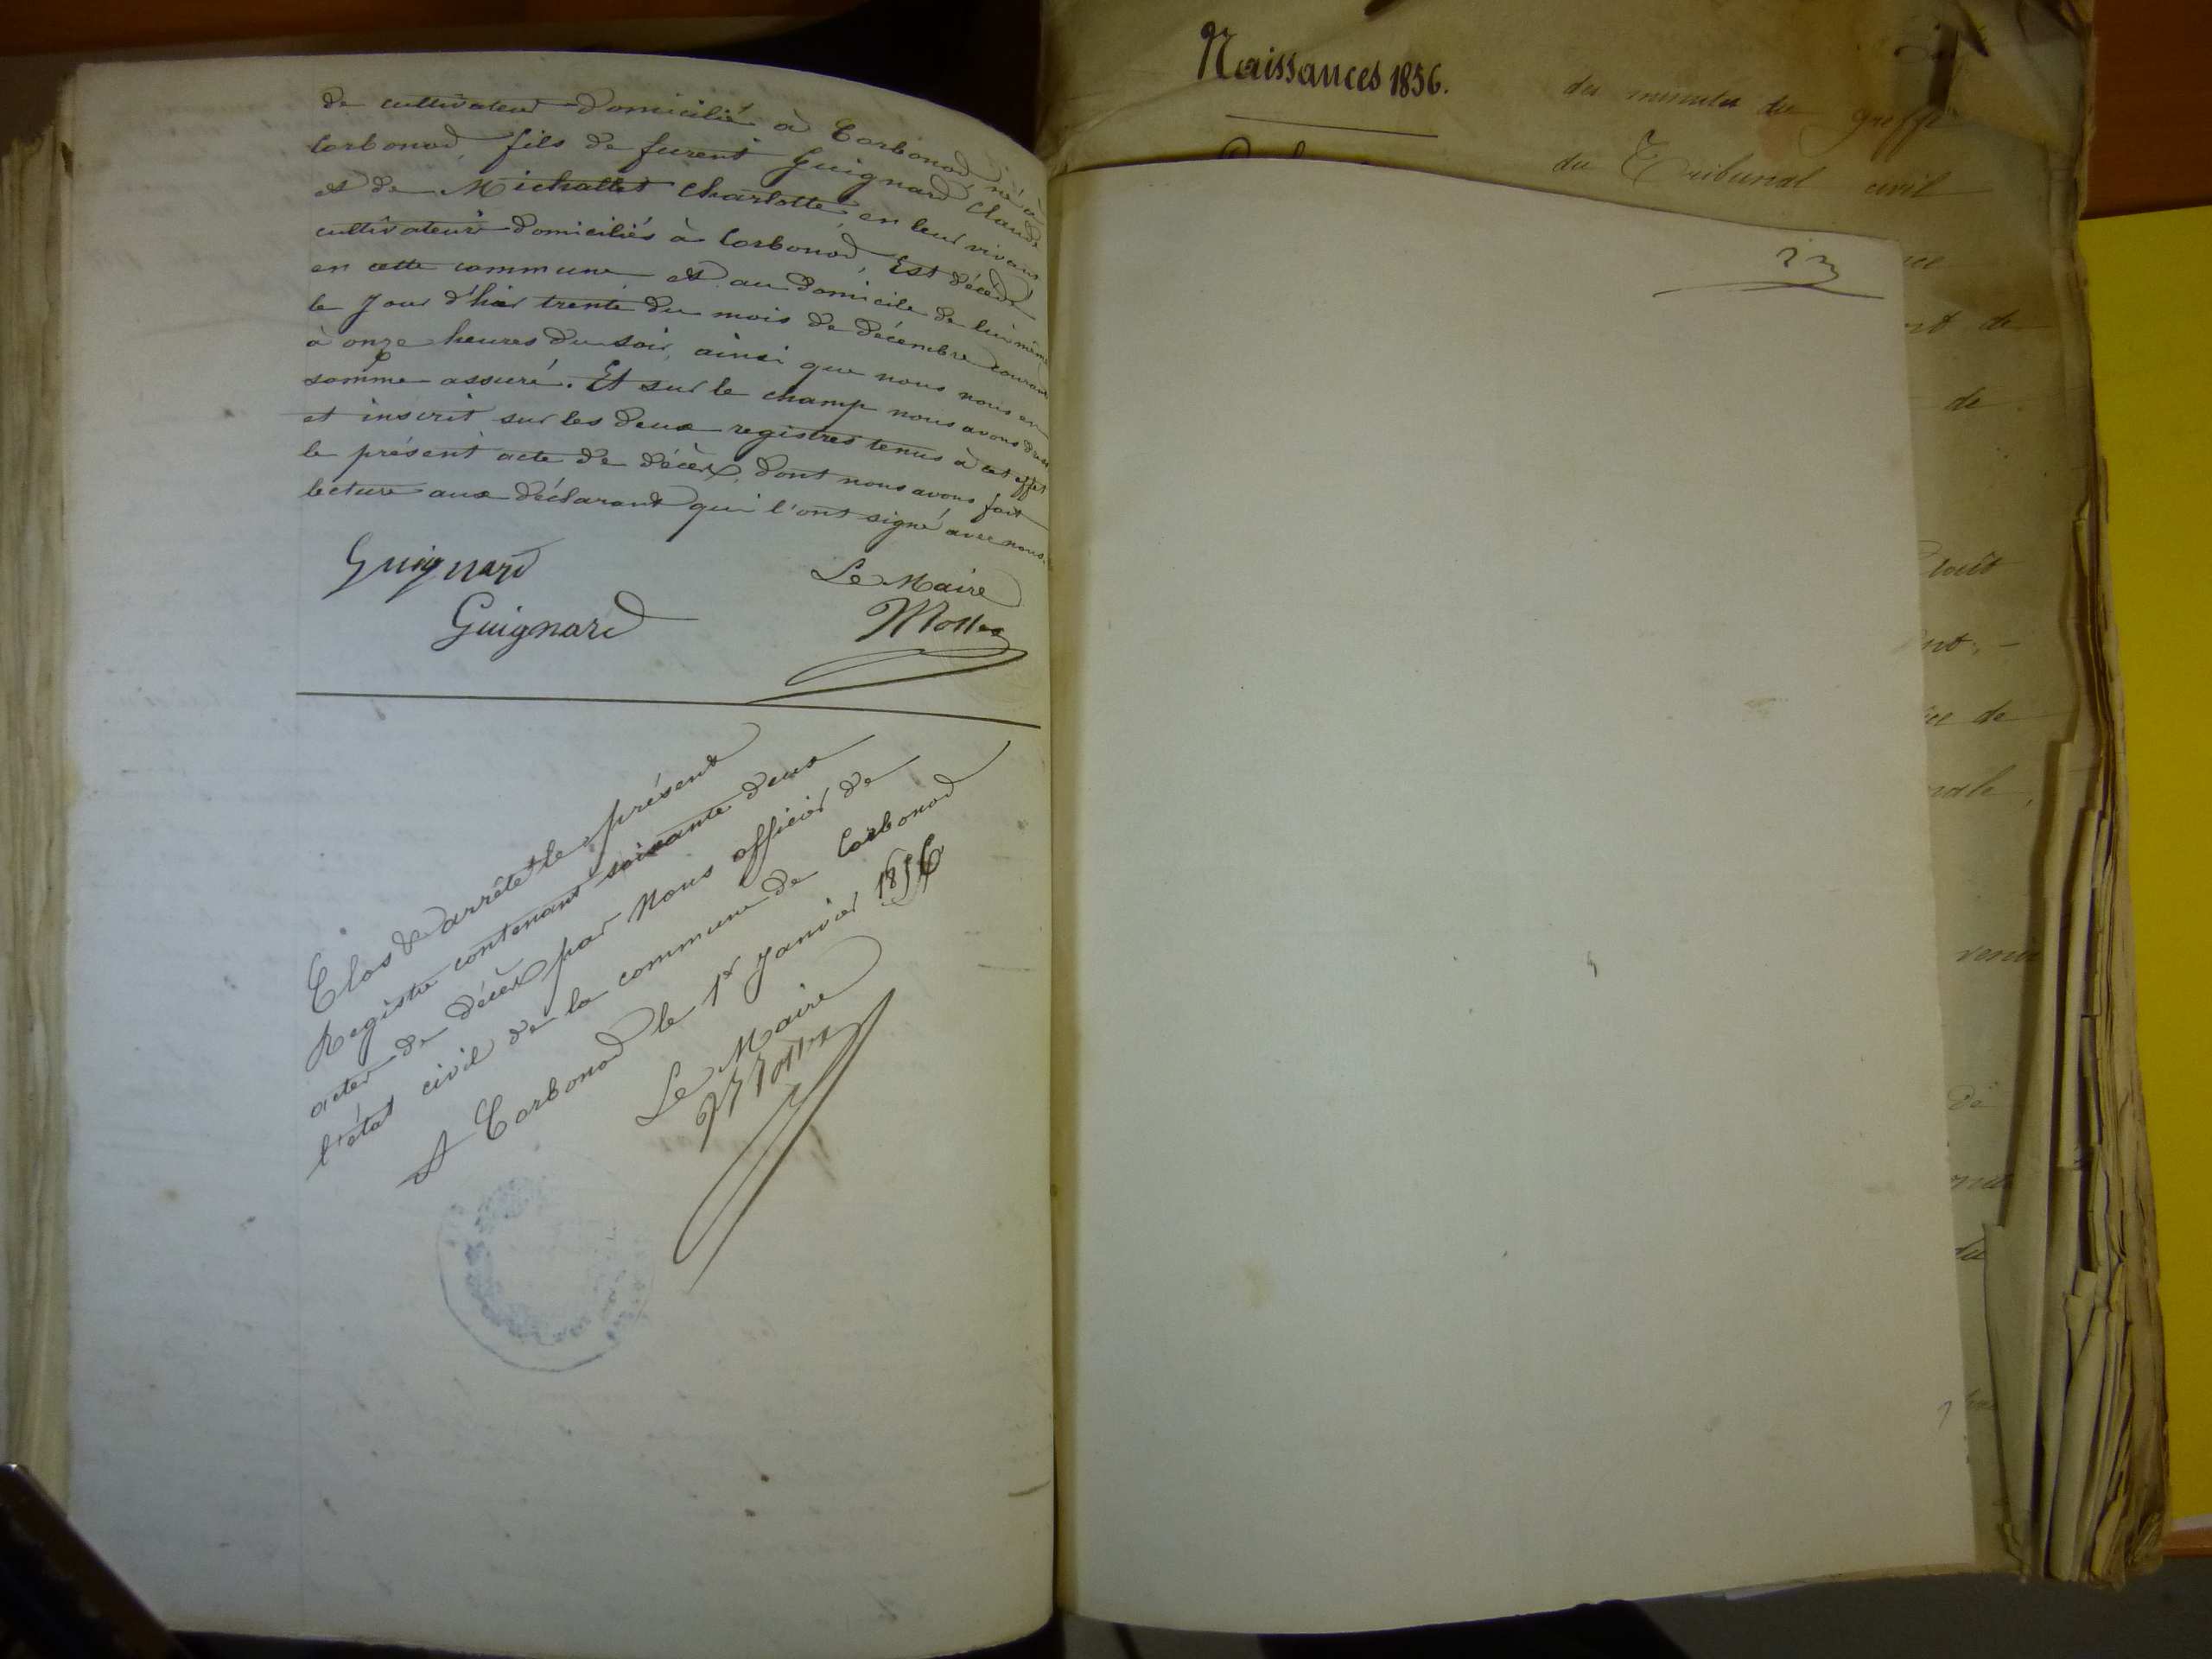 de cultivateur domicilié à Corbonod, né à
Corbonod, fils de furent Guignard Claude
et de Michallet Charlotte en leur vivant
cultivateurs domiciliés à Corbonod, Est décédé
en cette commune et au domicile de lui même
le jour d'hier trente du mois de décembre courant
à onze heures du soir, ainsi que nous nous en
somme assuré. Et sur le champ nous avons
et inscrit sur les deux registres tenus à cet effet
le présent acte de décès, dont nous avons fait
lecture aux déclarant qui l'ont signé avec nous.
Guignard
Guignard
Le Maire
Clos & arrêté le présent
Registre contenant soixante deux
actes de décès par Nous officier de
l'état civil de la commune de Corbonod
A Corbonod le 1er janvier 1856
Le Maire
Naissances 1856.
des minutes du greffe
du Tribunal civil
de
de
de
venir
de